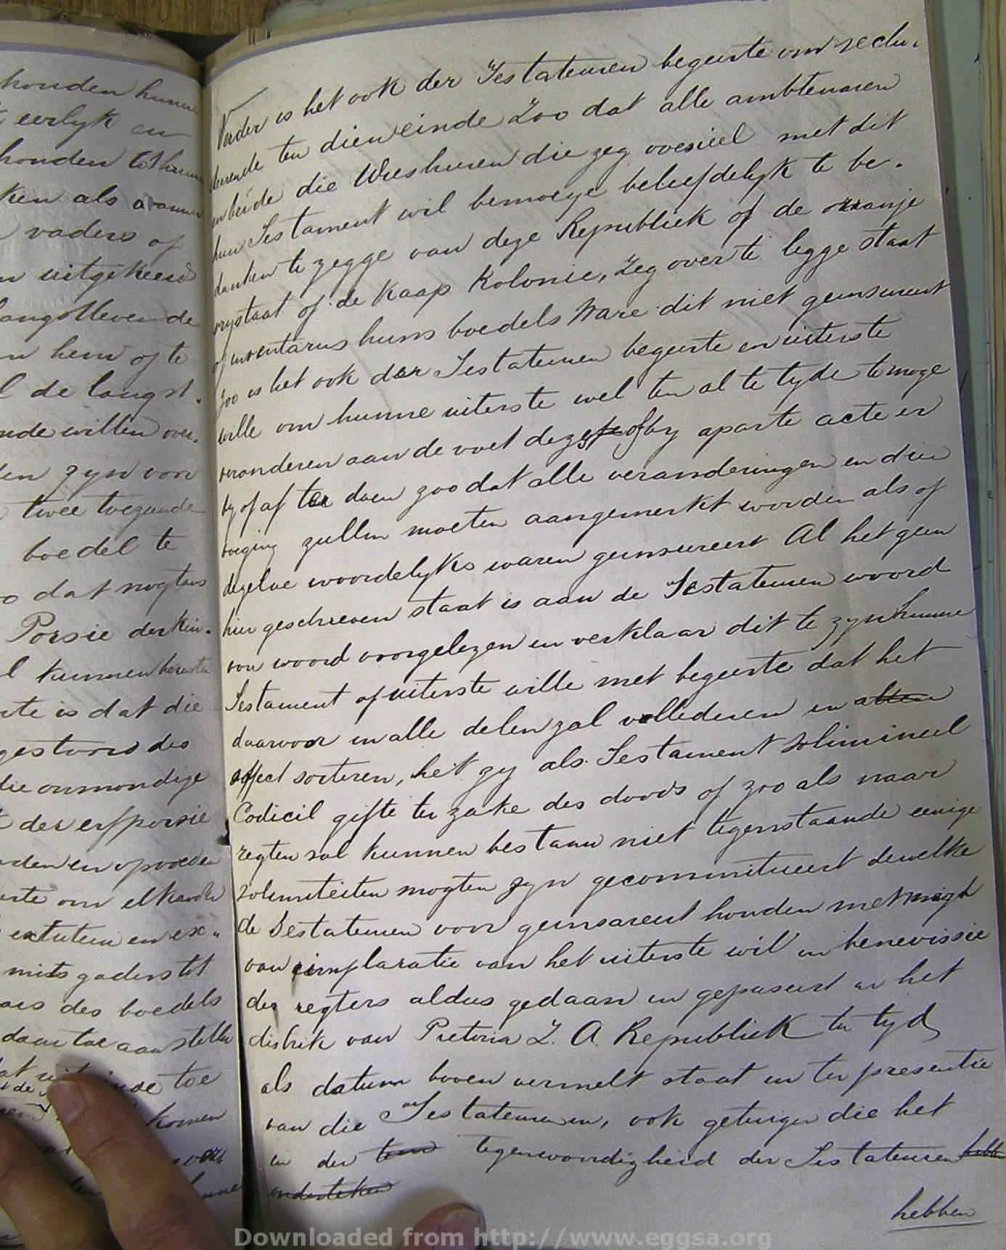 honden hunn
eerlyk en
honden tot hunn
ken als
vaders of
uitgekeerd
langstlevende
hem of te
l de langst.
nde willen over.
en zyn voor
twee toegaande
boedel te
o dat nogtans
Porsie der kin.
l kunnen
rte is dat die
gestoors des
die onmondige
der erfporsie
den en opvoeden
rte om elkander
en ex.
mits gaders tot
ars des boedels
daar toe aanstellen
toe
komen
Verder is het ook der Testateuren begeerte om seclu.
deerende ten dien einde Zoo dat alle ambtenaren
en beide die Weesheeren die zeg ovesieel met dit
hun Testament wil bemoeye beleefdelyk te be.
danken te zegge van deze Republiek of de oranje
vrystaat of de Kaap Kolonie, Zeg over te legge staat
of inventarus huns boedels Ware dit niet geinsereert
zoo is het ook der Testateuren begeerte en uiterste
wille om hunne uiterste wel ten al te tyde te moge
veranderen aan de voet dezes of by aparte acte er
by of af ter doen zoo dat alle veranderingen en dien
voeging zullen moeten aangemerkt worden als of
dezelve woordelyks waren geinsereert Al het geen
hier geschreven staat is aan de Testateuren woord
von woord voorgelezen en verklaar dit te zyn hunne
Testament of uiterste wille met begeerte dat het
daarvoor in alle delen zal vollederen en allen
effect sorteren, het zy als Testament Solimineel
Codicil gifte ter zake des doods of zoo als naar
regten sal kunnen bestaan niet tegenstaande eenige
Solemniteiten mogten zyn gecommitteert dewelke
de Testateuren voor geinsareert houden met magt
van implaratie van het uiterste wil en benevissie
des regters aldus gedaan en gepaseert in het
distrik van Pretoria Z. A. Republiek ten tyd
als datum boven vermelt staat en ter presentie
van die Testateuren, ook getuigen die het
in der teen tegenwoordigheid der Testateuren hebb
onderteken
hebben
Downloaded from http://www.eggsa.org